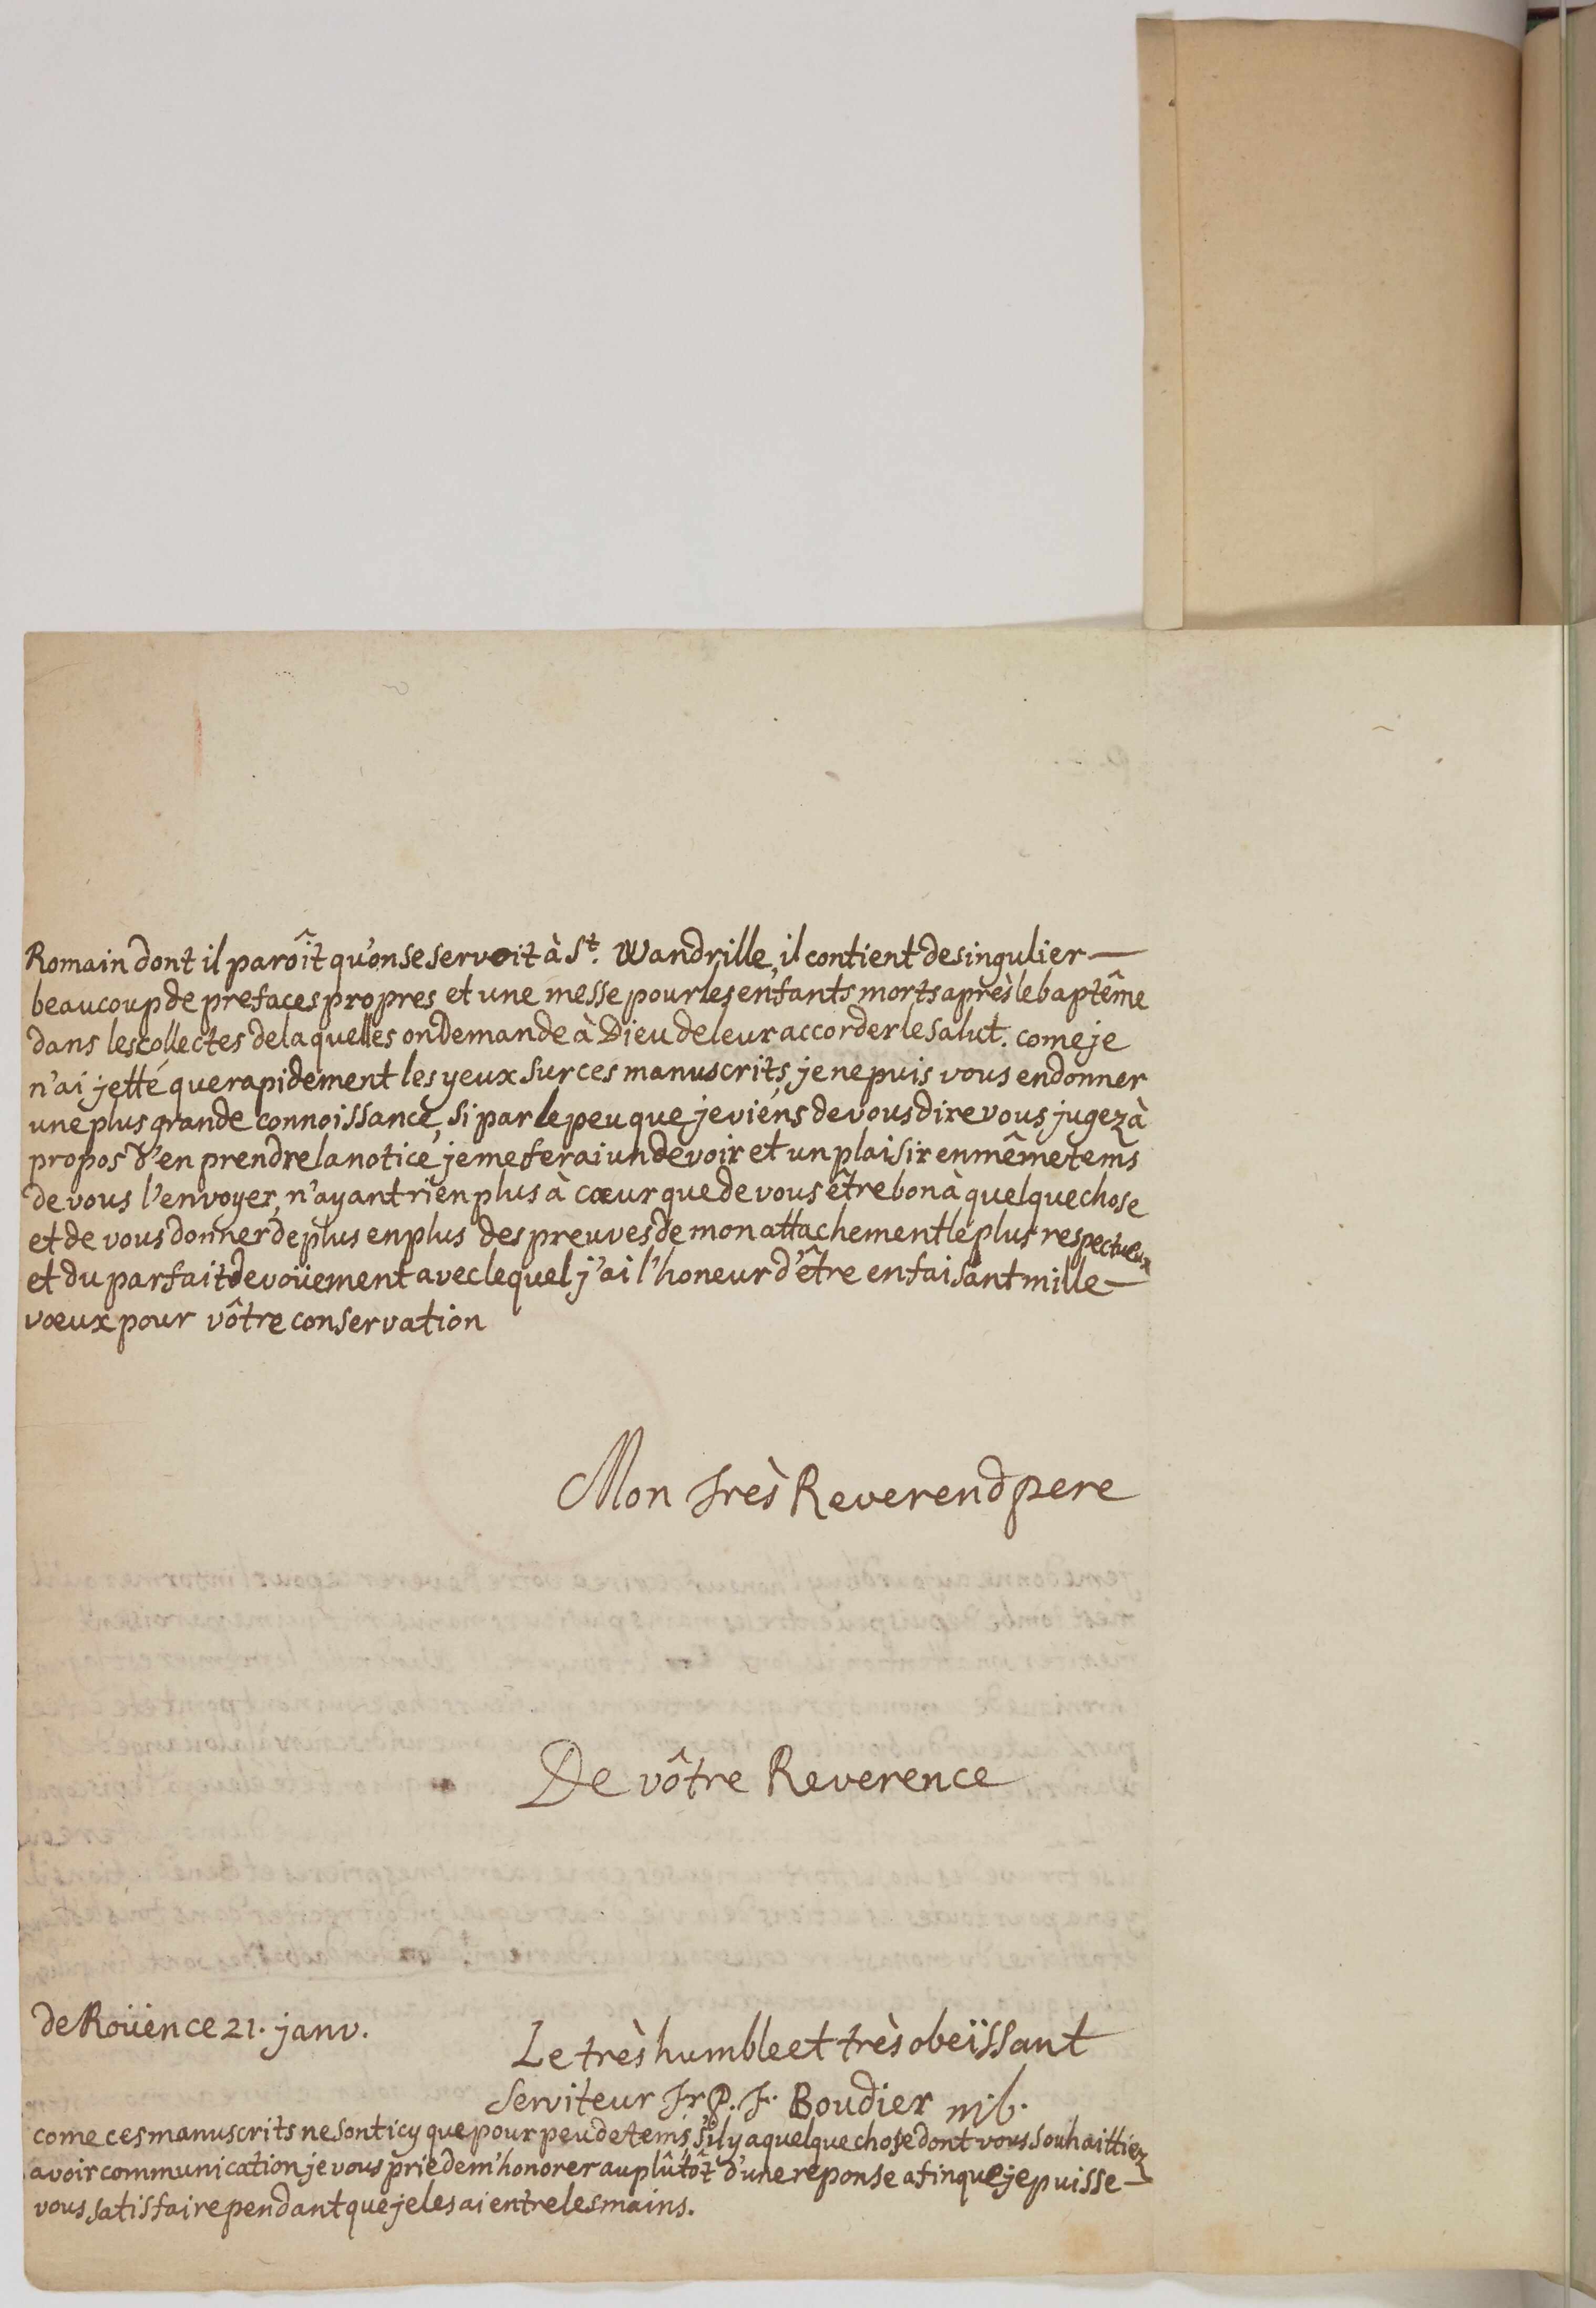 Romain dont il paroît qu'on se servoit à St. Wandrille, il contient de singulier —
beaucoup de prefaces propres et une messe pour les enfants morts après le baptême
dans les collectes de laquelles on demande à Dieu de leur accorder le salut. come je
n'ai jetté que rapidement les yeux sur ces manuscrits, je ne puis vous en donner
une plus grande connoissance, si par le peu que je viens de vous dire vous jugez à
propos d'en prendre la notice, je me ferai un devoir et un plaisir en même tems
de vous l'envoyer, n'ayant rien plus à cœur que de vous être bon à quelque chose
et de vous donner de plus en plus des preuves de mon attachement le plus respectueux
et du parfait devoüement avec lequel j'ai l'honeur d'être en faisant mille —
vœux pour vôtre conservation
Mon Très Reverend pere
De vôtre Reverence
de Roüen ce 21. janv.
Le très humble et très obeïssant
Serviteur Fr P. F. Boudier mb.
come ces manuscrits ne sont icy que pour peu de tems, s'il y a quelque chose dont vous souhaittiez
avoir communication je vous prie de m'honorer au plûtôt d'une reponse afin que je puisse —
vous satisfaire pendant que je les ai entre les mains.